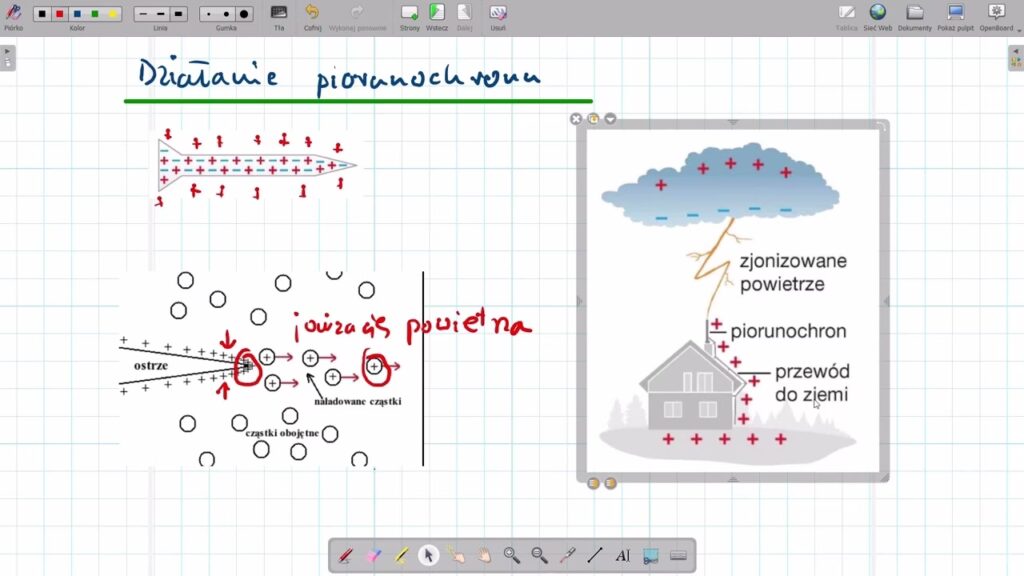 Piórko
Kolor
Linia
Gumka
Tła
Cofnij
Wykonaj ponownie
Strony
Wstecz
Dalej
Usuń
Tablica
Sieć Web
Dokumenty
Pokaż pulpit
OpenBoard
Działanie piorunochronu
jonizacja powietrza
ostrze
naładowane cząstki
cząstki obojętne
zjonizowane
powietrze
piorunochron
przewód
do ziemi